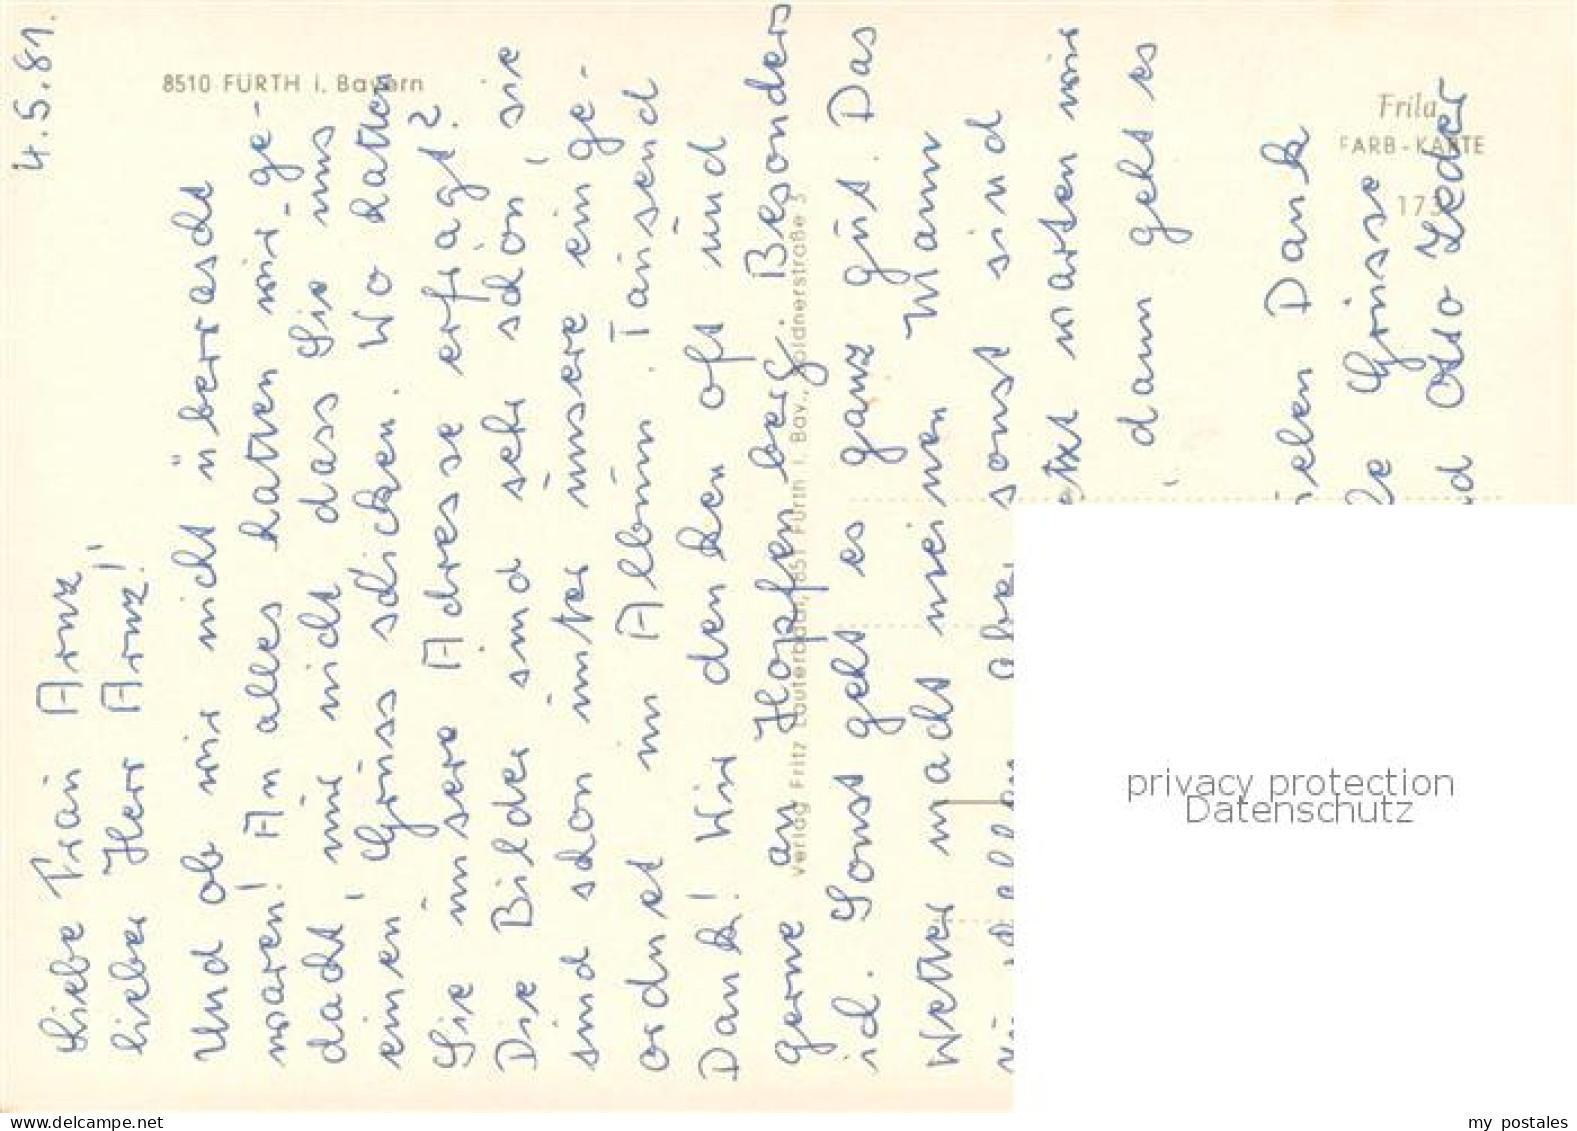 4.5.81.
Liebe Frau Arnz,
lieber Herr Arnz!
Und ob wir nicht überrascht
waren! An alles hatten wir ge-
dacht, nur nicht dass Sie uns
einen Gruss schicken. Wo hatten
Sie unsere Adresse erfragt?
Die Bilder sind sehr schön, sie
sind schon unter unsere einge-
ordnet im Album. Tausend
Dank! Wir denken oft und
gerne an Hopfenberg. Besonders
ich. Sonst geht es ganz gut. Das
Wetter macht meinen Mann
sonst sind
warten wir
dann geht es
Dank
Grüsse
Otto Zeder
8510 FÜRTH i. Bayern
Frila
FARB-KARTE
173
Verlag Fritz Lauterbach, 851 Fürth i. Bay., Soldnerstraße 3
privacy protection
Datenschutz
www.delcampe.net
my postales